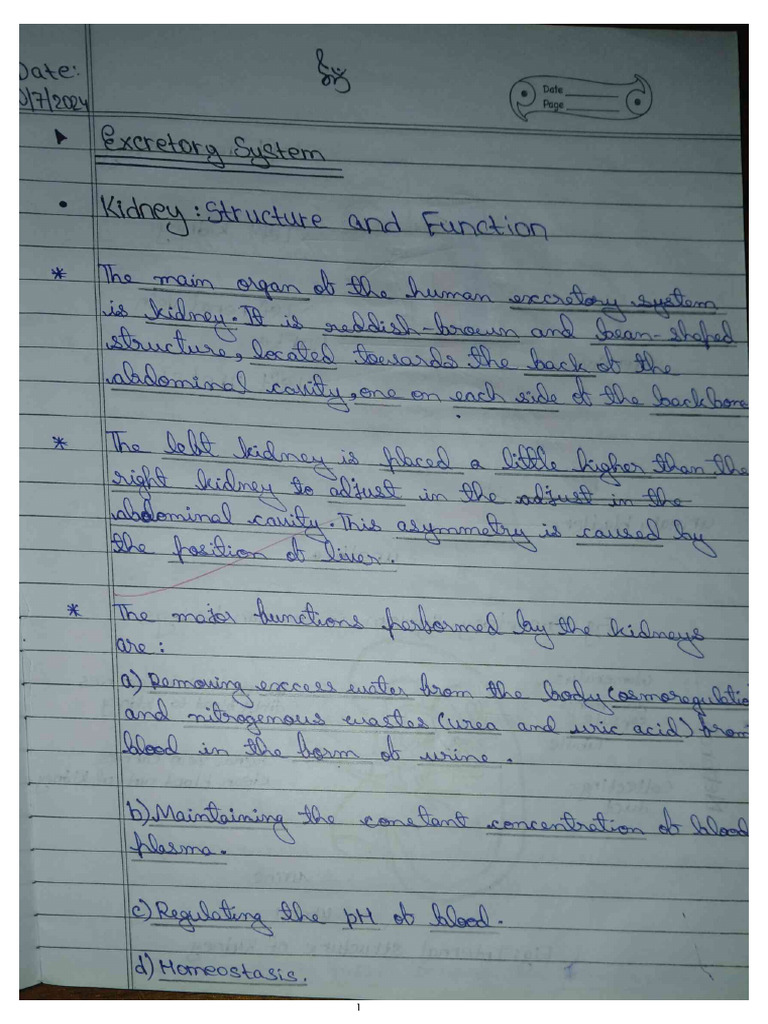 Date:
Date
/7/2024
Page
Excretory System
• Kidney: Structure and Function
* The main organ of the human excretory system
is kidney. It is reddish-brown and bean-shaped
structure, located towards the back of the
abdominal cavity, one on each side of the backbone
* The left kidney is placed a little higher than the
right kidney to adjust in the adjust in the
abdominal cavity. This asymmetry is caused by
the position of liver.
* The major functions performed by the kidneys
are:
a) Removing excess water from the body (osmoregulatio
and nitrogenous wastes (urea and uric acid) from
blood in the form of urine.
b) Maintaining the constant concentration of blood
plasma.
c) Regulating the pH of blood.
d) Homeostasis.
1